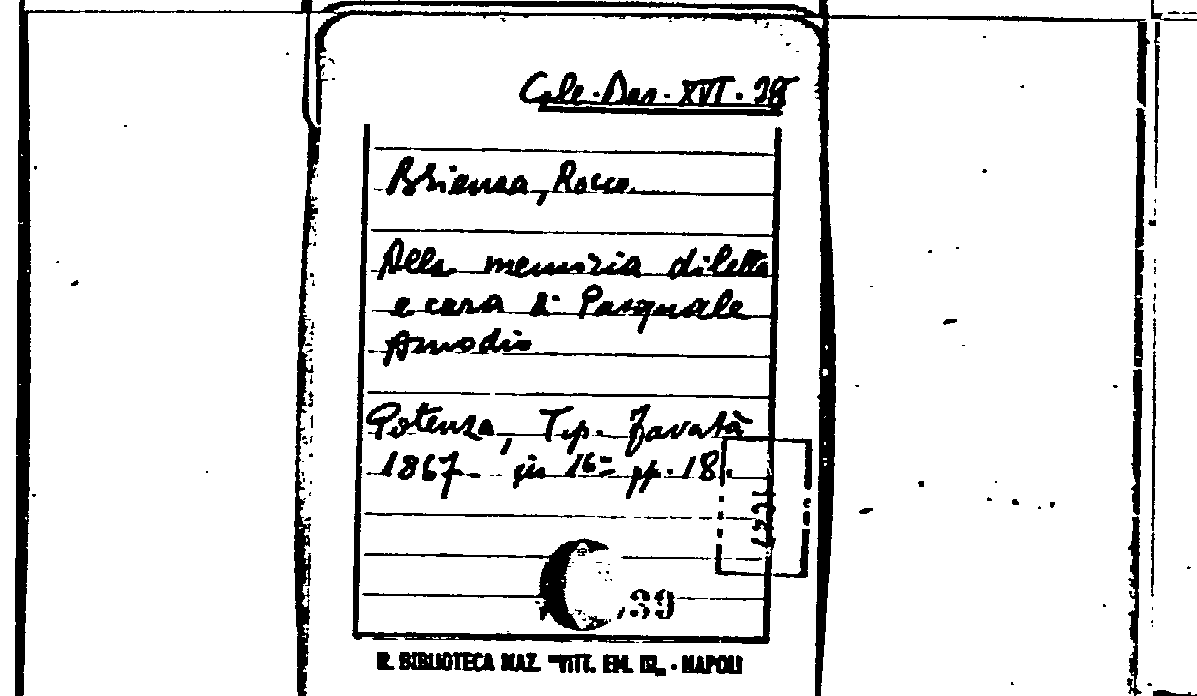 XVI. 28
Brienza, Rocco.
Alla memoria diletta
e cara di Pasquale
Amodio
Potenza, Tip. Favatà
1867 in 16º pp. 18.
39
R. BIBLIOTECA NAZ. "VITT. EM. III„ - NAPOLI